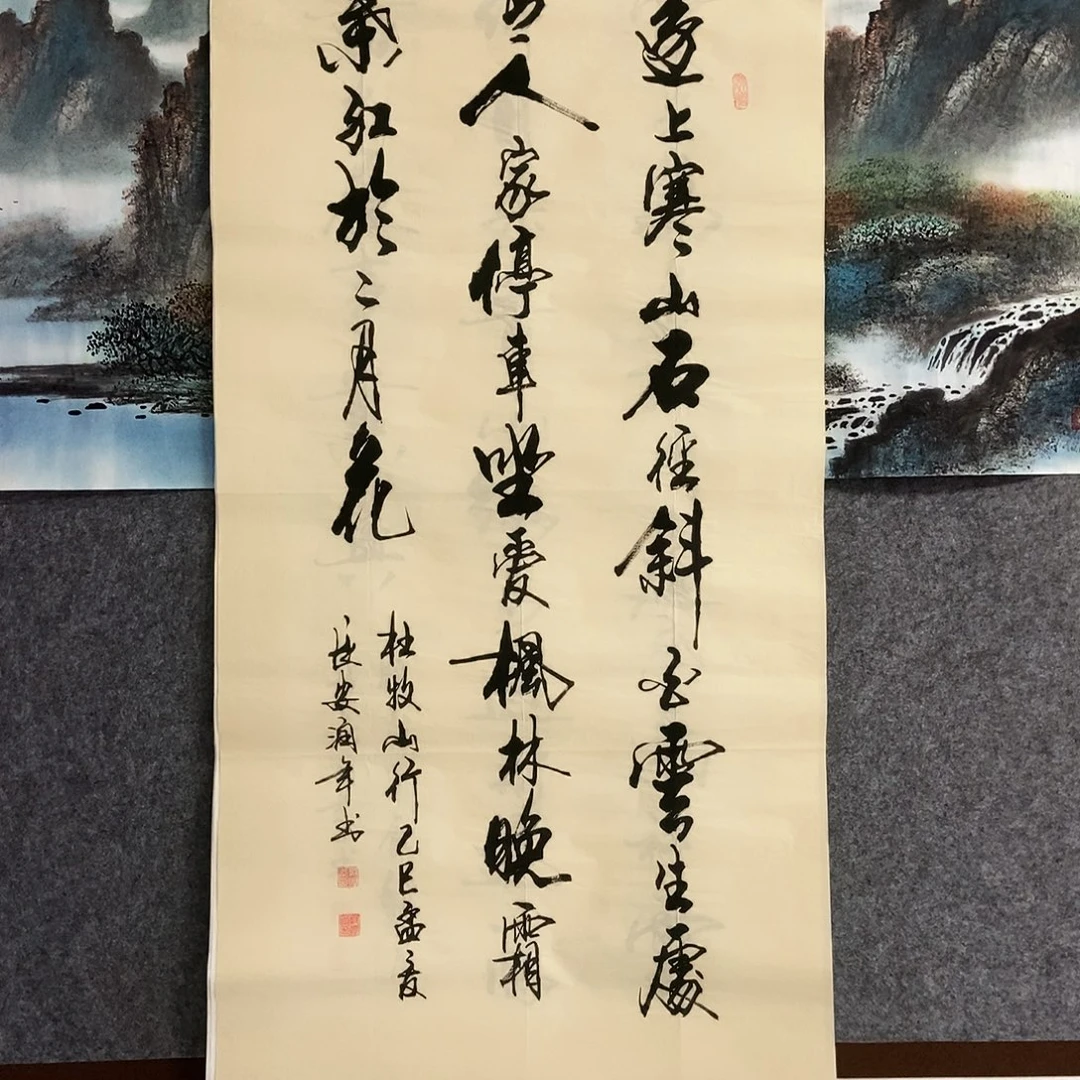 遠上寒山石徑斜白雲生處
有人家停車坐愛楓林晚霜
葉紅於二月花
杜牧山行乙巳孟夏
長安潤年书